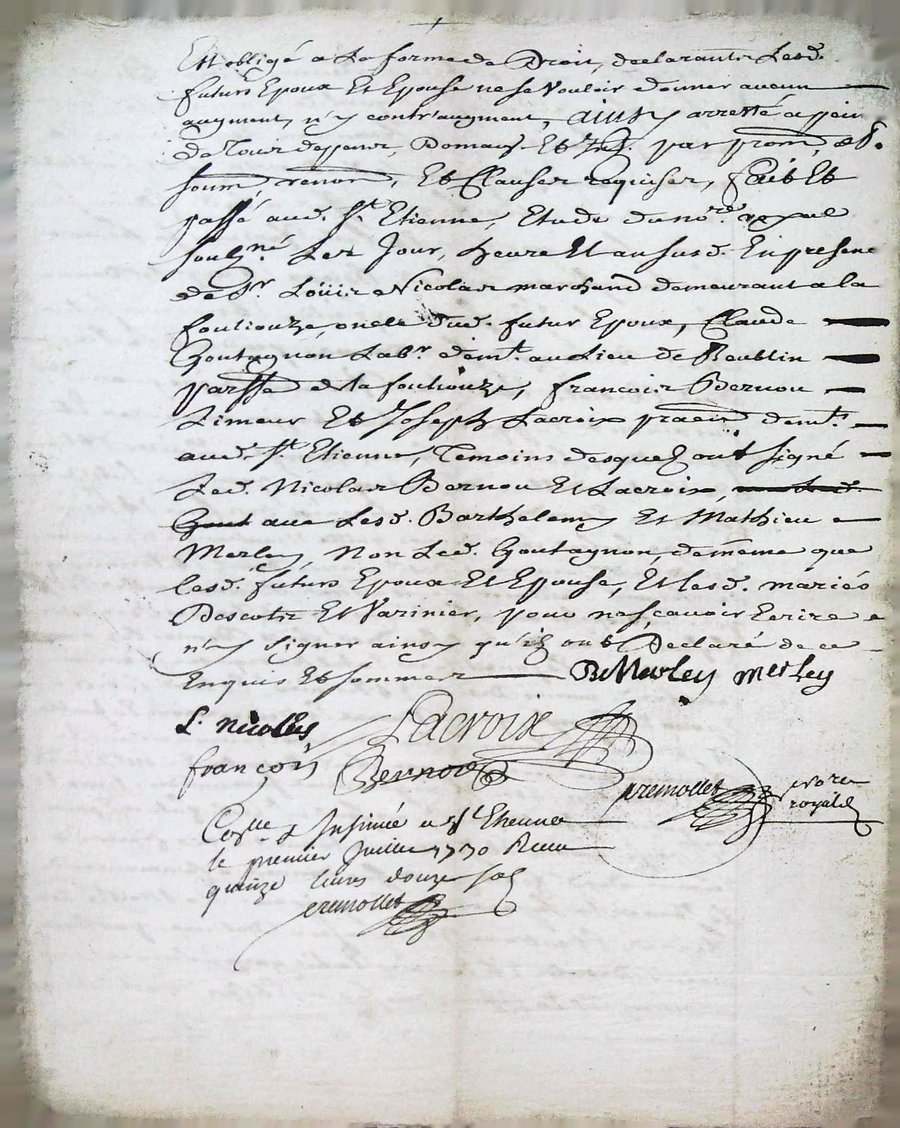 Est obligé a La forme de Droit, declarants Lesd.
futurs Epoux Et Epouse ne se vouloir donner aucun
augment, n'y contr'augment, ainsy arresté a pein
de Tous depens, Domag. Et Int. par prom, obl.
soum, renon, Et Clauses requises, fait Et
passé aud. St. Etienne, Etude du nore. royal
soubz.né Les Jour, heure Et an susd. En presene
de Sr. Loüis Nicolas marchand demeurant a la
fouliouze, oncle dud. futur Epoux, Claude
Goutagnon Labr. demt. au Lieu de Reublin
parsse de la fouliouze, françois Bernou
Limeur Et Joseph Lacroix praen. demts.
aud. St. Etienne, Temoins desquels ont signé
Led. Nicolas Bernou Et Lacroix,
avec Lesd. Barthelemy Et Mathieu
Merley, Non Led. Goutagnon, de mème que
lesd. futurs Epoux Et Epouse, Et lesd. mariés
Descotz Et Varinier, pour ne sçavoir Ecrire
n'y signer ainsy qu'ils ont Declaré de ce
Enquis Et sommes B Merley merley
L. nicolas Lacroix
françois Bernou
premollet nore
royal
Coll. & Insinué a St Etienne
le premier Juillet 1730 Receu
quinze livres douze sols
premollet